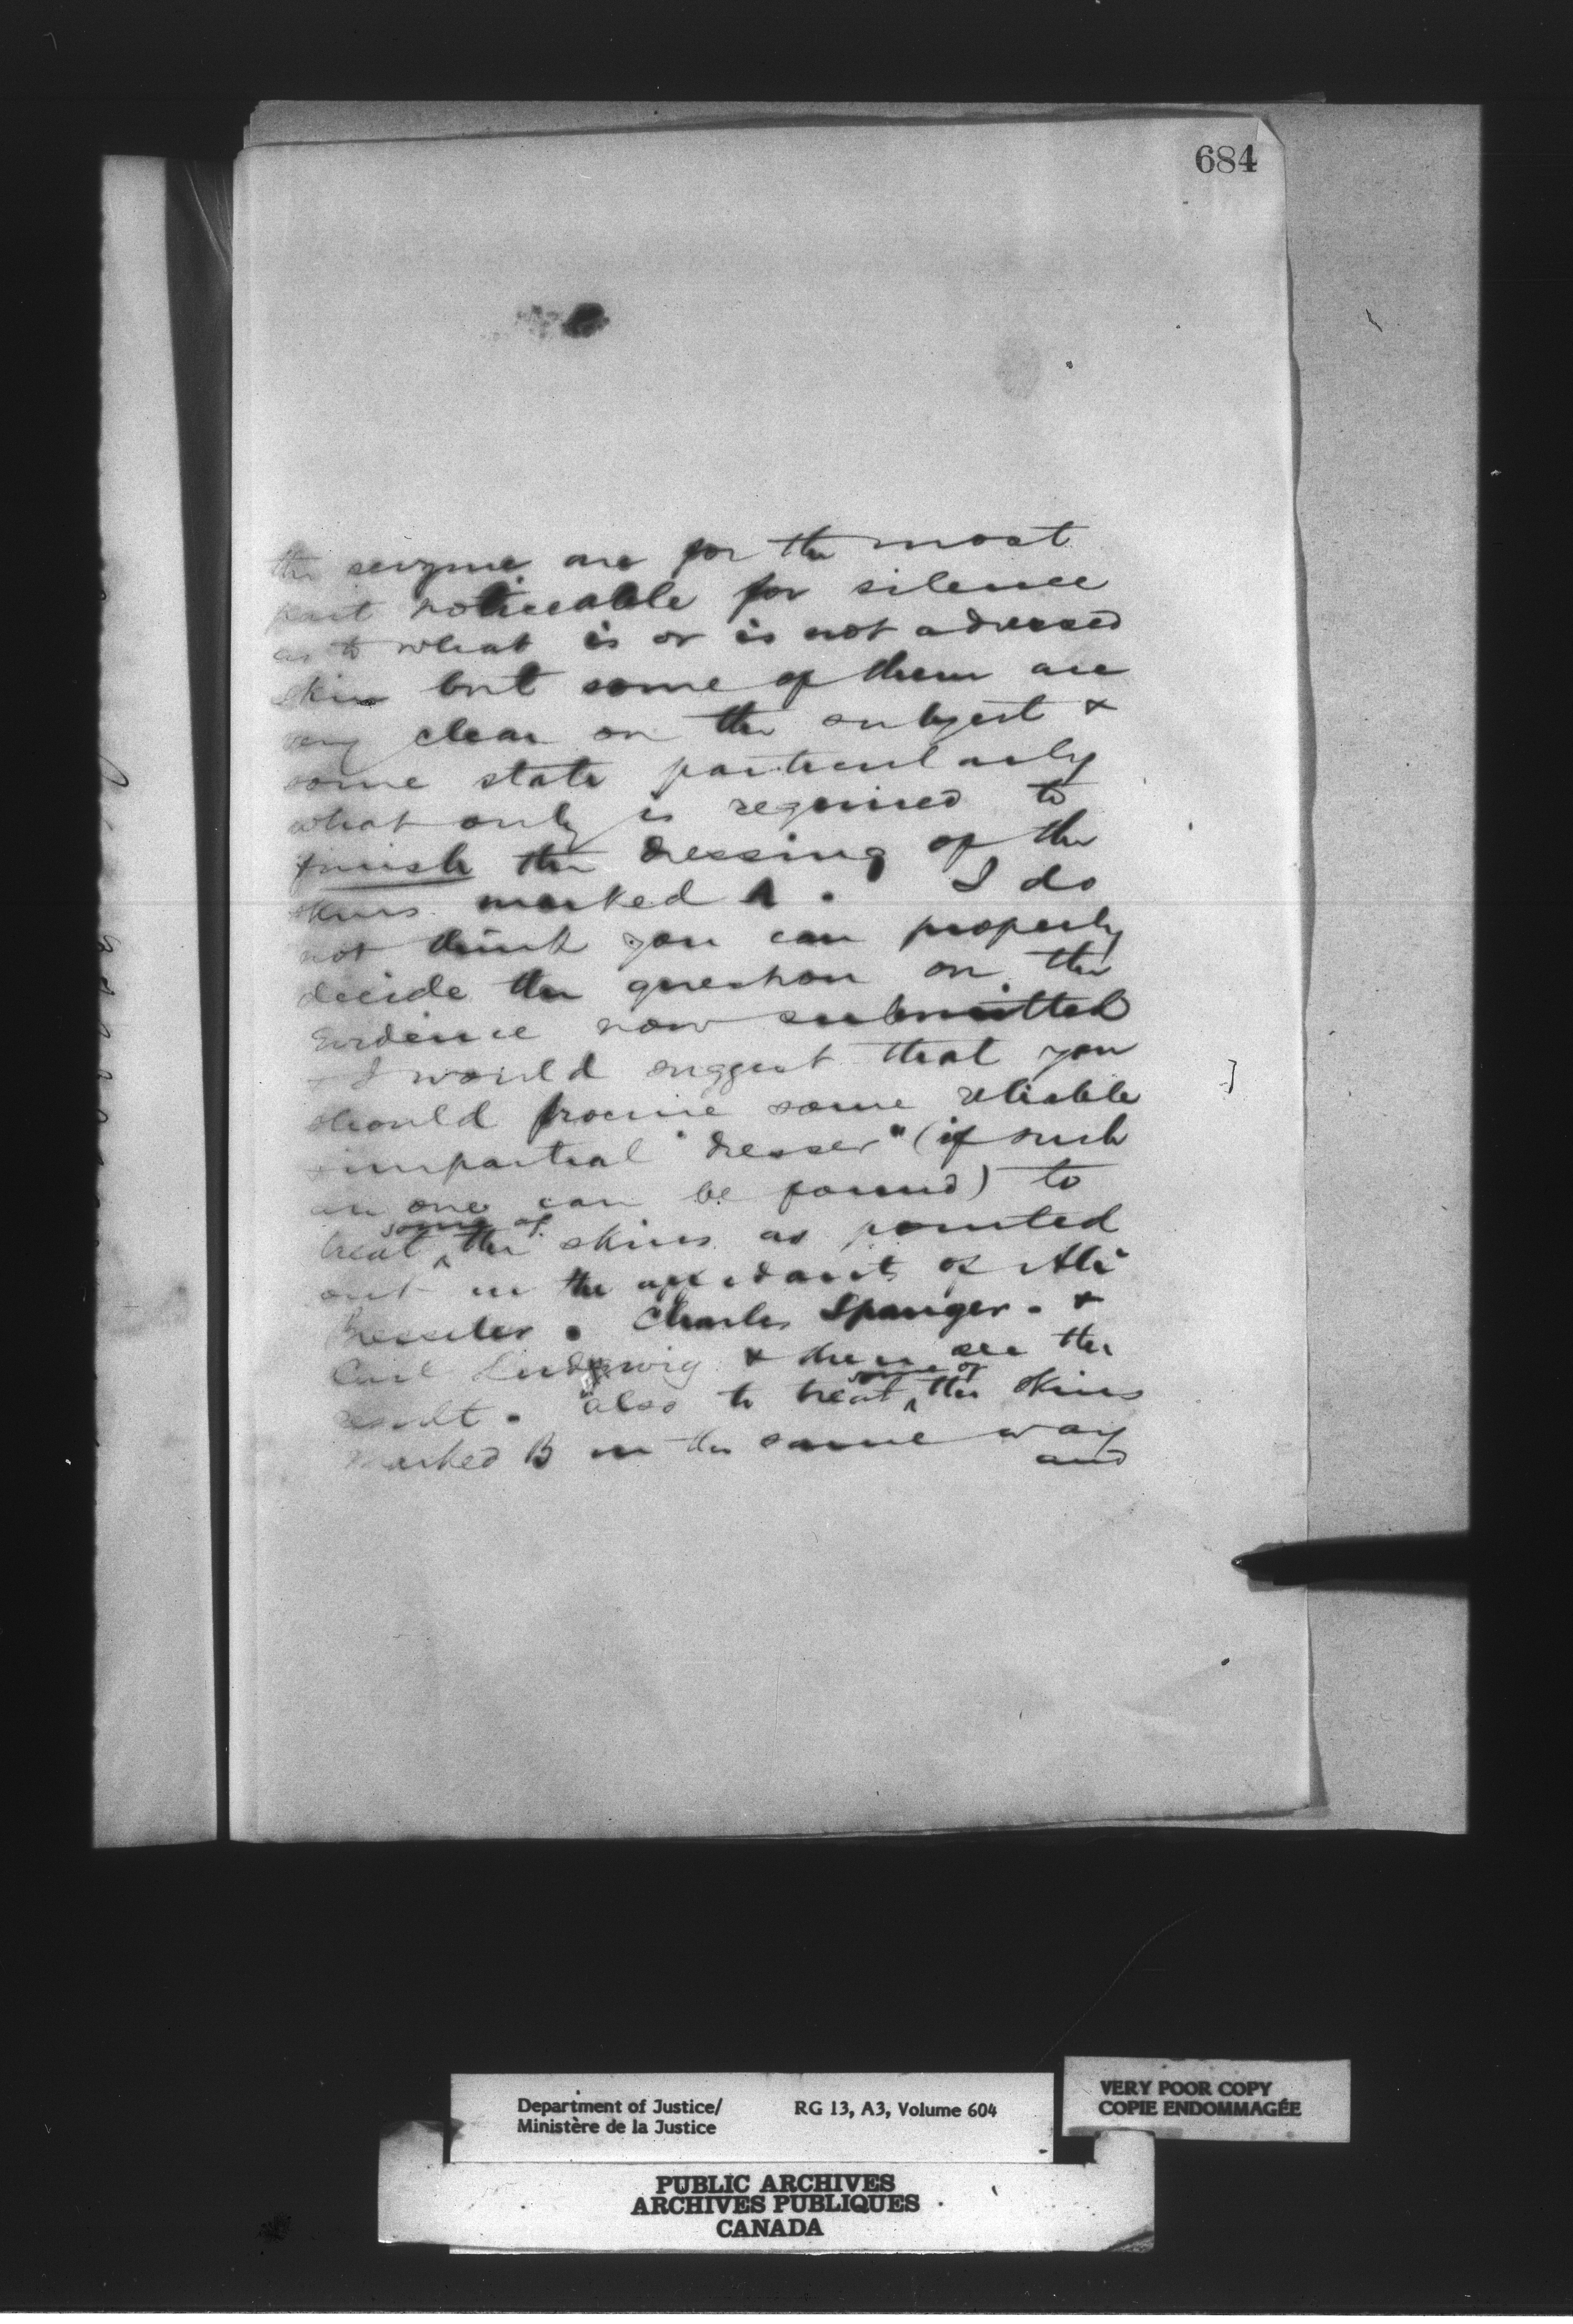 684
the seizure are for the most
part noticeable for silence
as to what is or is not a dressed
skin but some of them are
very clear on the subject &
some state particularly
what only is required to
finish the dressing of the
skins marked A. I do
not think you can properly
decide the question on the
evidence now submitted
I would suggest that you
should procure some reliable
impartial "dresser" (if such
an one can be found) to
treat some of the skins as pointed
out in the affidavits of
Bressler. Charles Spanger. &
Carl Ludwig & then see the
result. also to treat some of the skins
marked B in the same way
and
Department of Justice/
Ministère de la Justice
RG 13, A3, Volume 604
VERY POOR COPY
COPIE ENDOMMAGÉE
PUBLIC ARCHIVES
ARCHIVES PUBLIQUES
CANADA